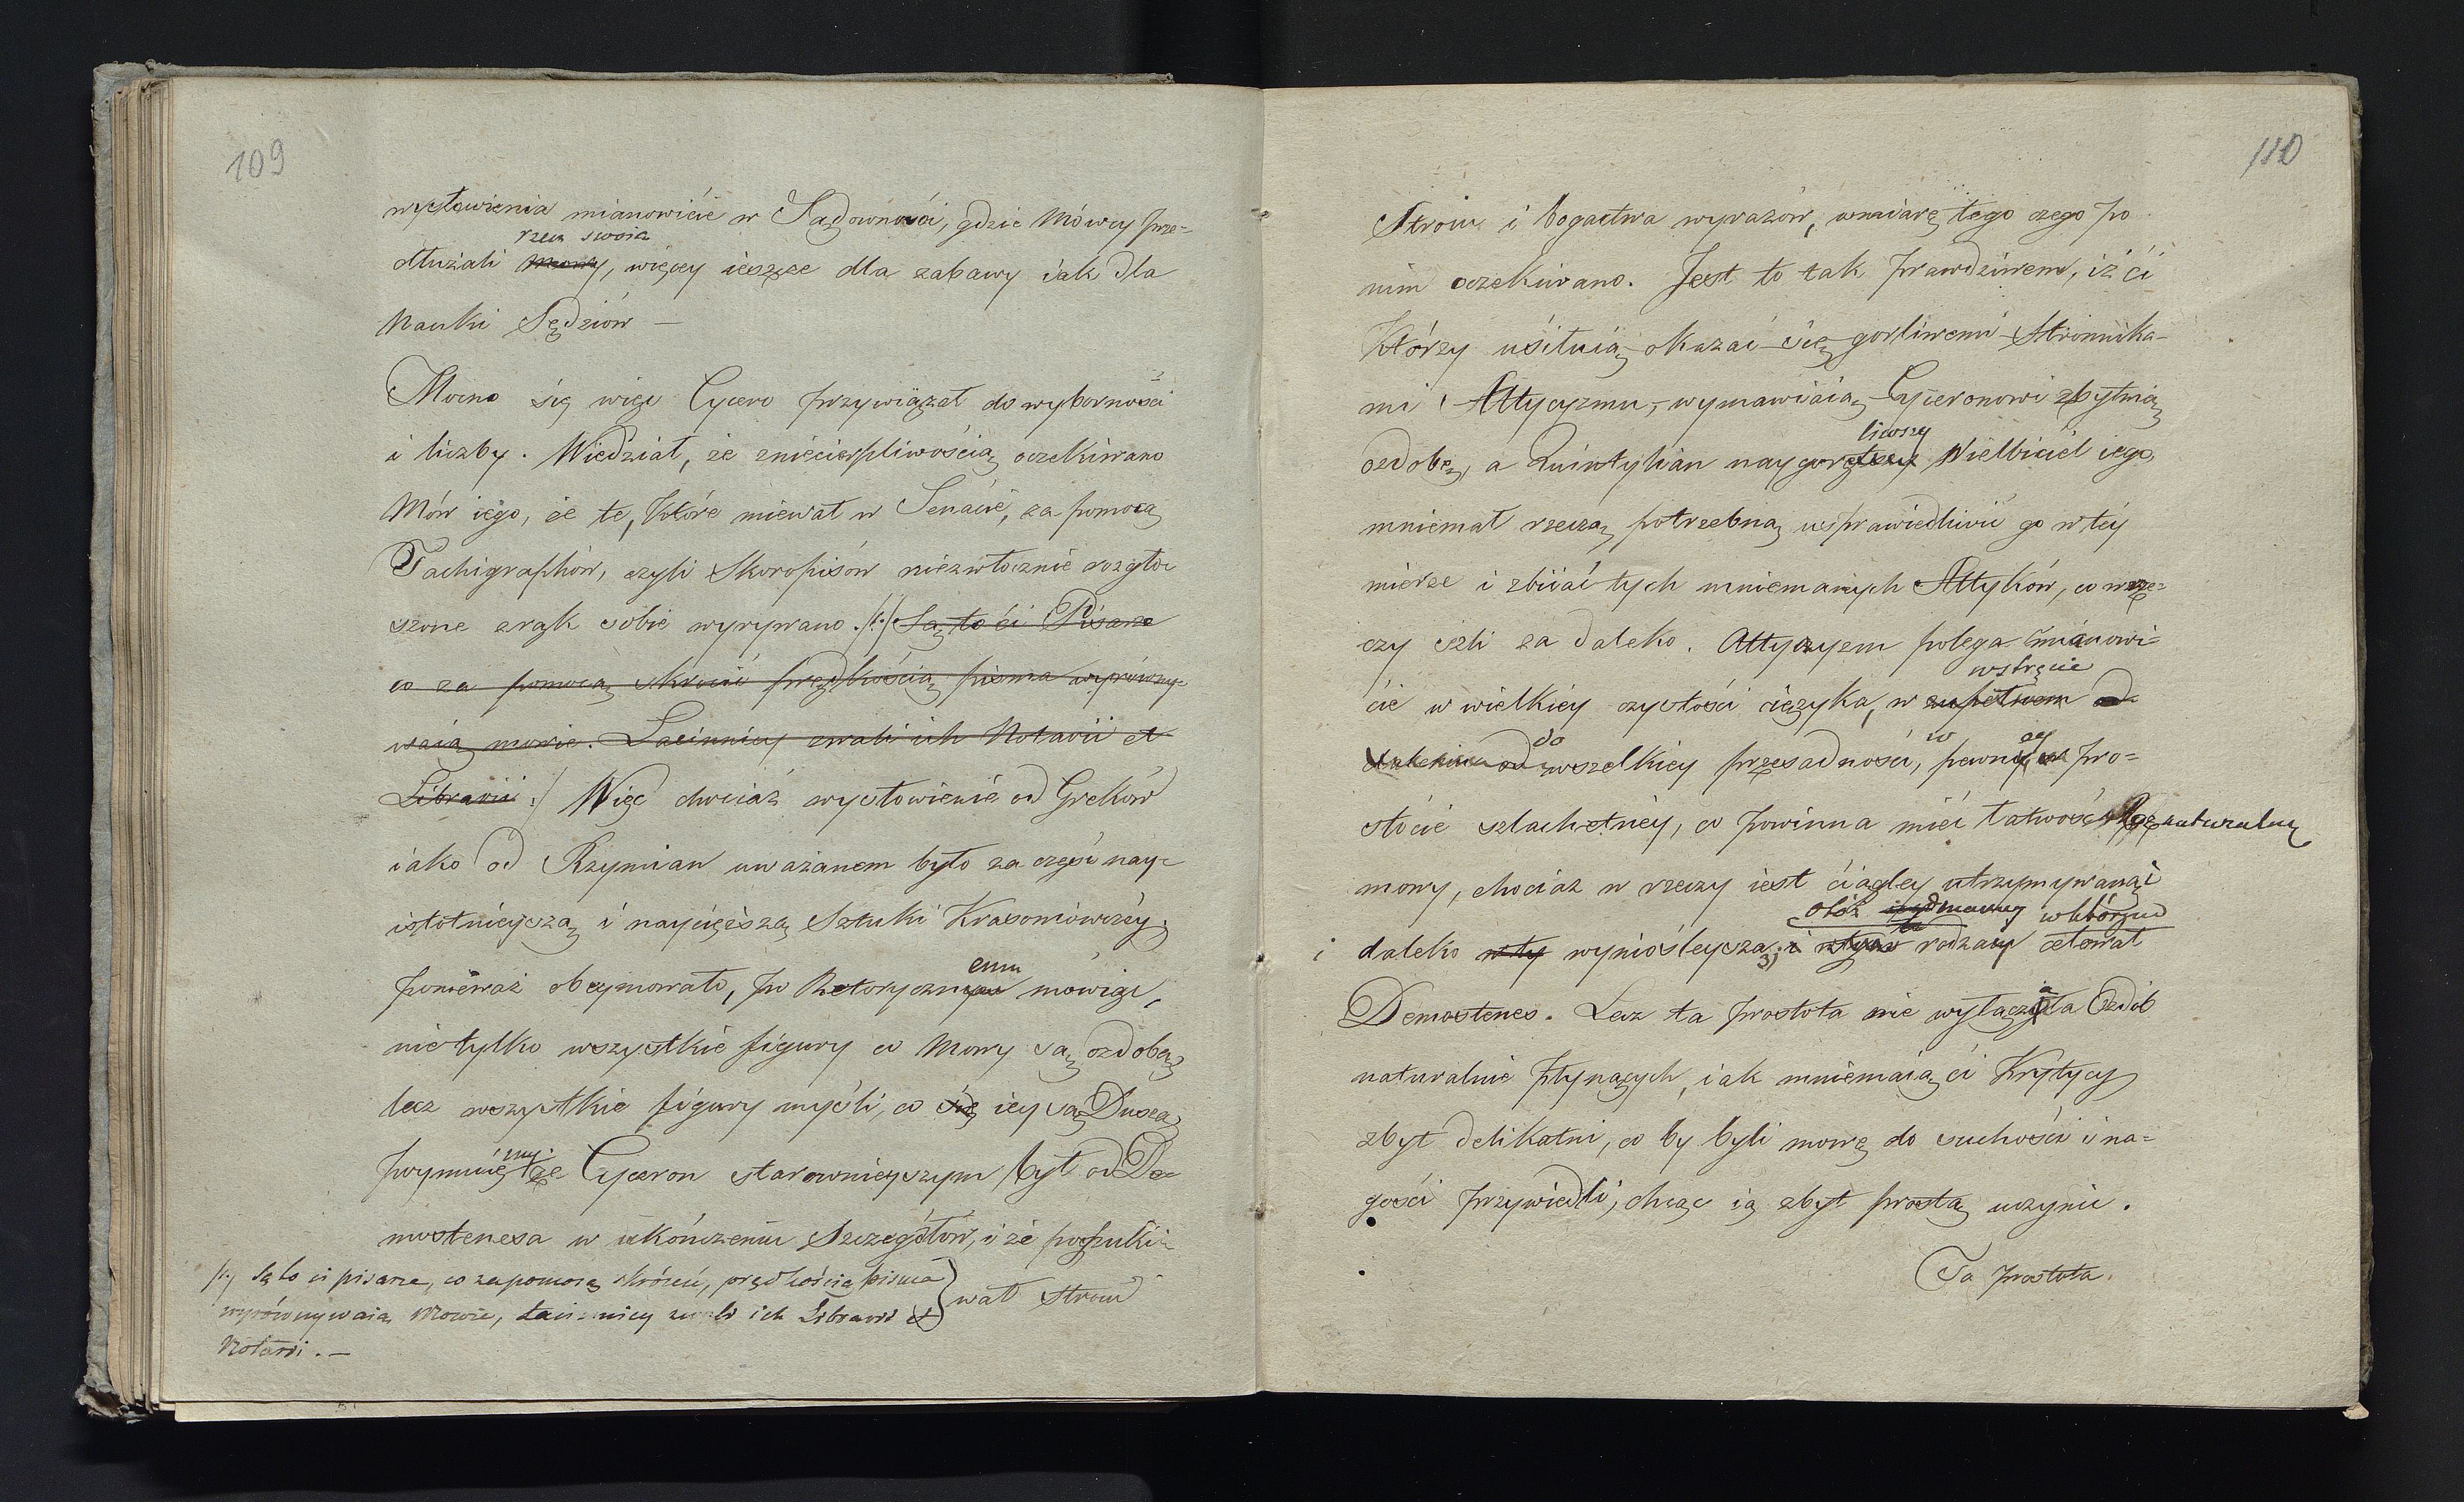 109
wysłowienia mianowicie w Sądowności, gdzie Mówcy prze-
rzecz swoią
dłużali mowy, więcey ieszcze dla zabawy iak dla
Nauki Sędziów —
Mocno się więc Cycero przywiązał do wyborności
i liczby. Wiedział, że zniecierpliwością oczekiwano
Mów iego, że te, które miewał w Senacie, za pomocą
Tachigraphów, czyli Skoropisów niezwłocznie rozgło-
szone z rąk sobie wyrywano. /:/ Są to ci Pisarze
co za pomocą skróceń prędkością pisma wyrówny-
waią mowie. Łacinnicy zwali ich Notarii et
Librarii :/ Więc chociaż wysłowienie od Greków
iako od Rzymian uważanem było za część nay-
istotnieyszą i naycięższą Sztuki Krasomówczéy,
emu
ponieważ obeymowało, po Retorycznym mówiąc,
nietylko wszystkie figury co Mowy są ozdobą,
lecz wszystkie figury myśli, co się iey są Duszą
my.
Przymuię że Cyceron starownieyszym był od De-
mostenesa w ukończeniu Szczegółów, i że poszuki-
wał stroiu
/:/ Są to ci pisarze, co zapomocą skróceń, prędkością pisma
wyrównywaią Mowie, Łacinnicy zwali ich Librarii et
Notarii. —
110
Stroiu i bogactwa wyrazów, wmiarę tego czego po
nim oczekiwano. Jest to tak prawdziwem, iż ci
Którzy usiłuią okazać się gorliwemi Stronnika-
mi Attycyzmu, wymawiaią Cyceronowi zbytnią
liwszy
ozdobę, a Quintylian naygorętszy Wielbiciel iego,
mniemał rzeczą potrzebną usprawiedliwić go w téy
mierze i zbiiać tych mniemanych Attyków, co wrze-
czy szli za daleko. Attycyzm polega mianowi-
wstręcie
cie w wielkiey czystości ięzyka, w zupełnem od
do w ey
daleniu od wszelkiey przesadności, pewnéy w pro-
stocie szlachetnéy, co powinna mieć łatwość naturalną
mowy, chociaż w rzeczy iest ciągley utrzymywaną i
otóż wktórym
i daleko wty wyniośleyszą; i rodzaiy celował
Demostenes. Lecz ta prostota nie wyłącza Ozdób
naturalnie płynących, iak mniemaią ci Krytycy
zbyt delikatni, co by byli mowę do suchości i na-
gości przywiedli, chcąc ią zbyt prostą uczynić.
Ta prostota.